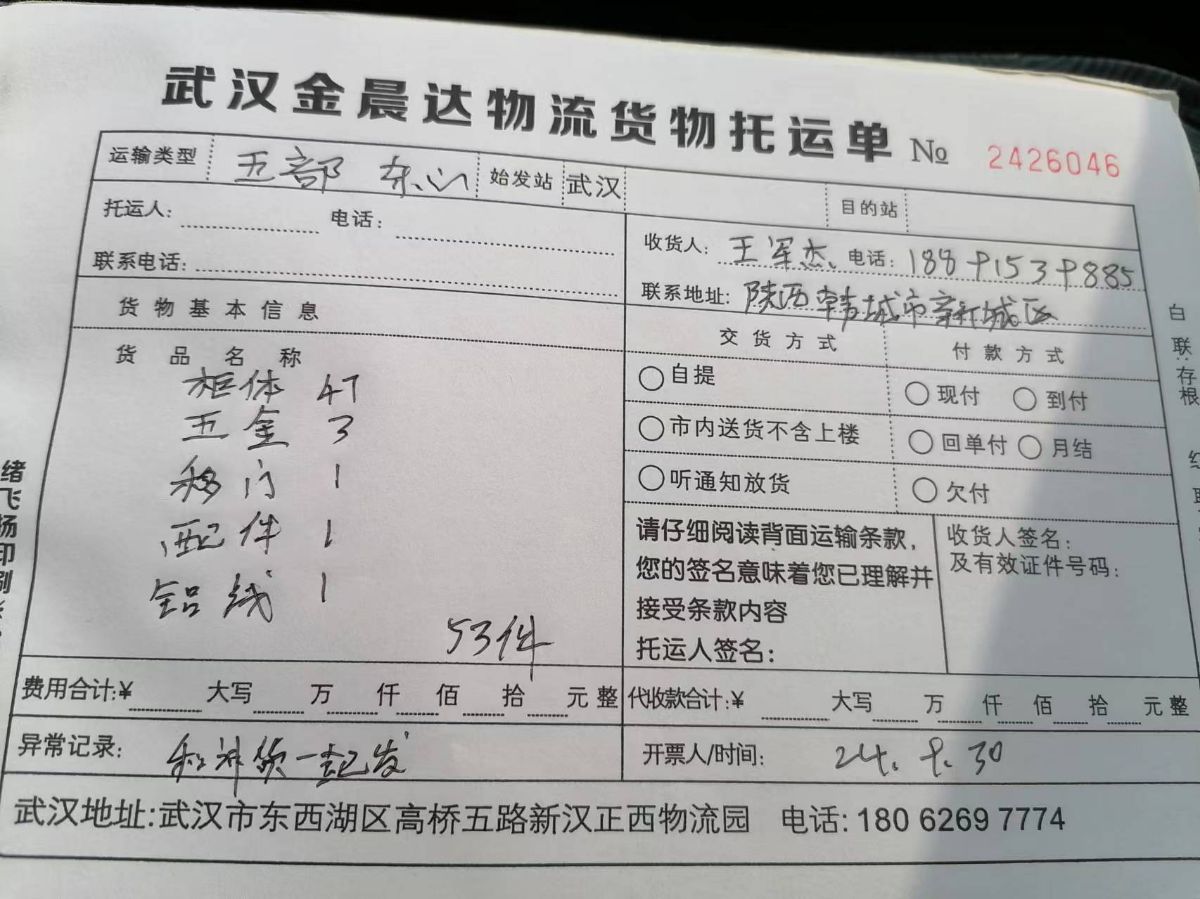 武汉金晨达物流货物托运单 № 2426046
运输类型 五部 东心 始发站 武汉 目的站
托运人: 电话: 收货人: 王军杰 电话: 18891539885
联系电话: 联系地址: 陕西韩城市新城区
货物基本信息 交货方式 付款方式
货品名称
柜体 47
五金 3
移门 1
配件 1
铝线 1
53件
自提 现付 到付
市内送货不含上楼 回单付 月结
听通知放货 欠付
请仔细阅读背面运输条款,
您的签名意味着您已理解并
接受条款内容
托运人签名:
收货人签名:
及有效证件号码:
费用合计:¥ 大写 万 仟 佰 拾 元整 代收款合计:¥ 大写 万 仟 佰 拾 元整
异常记录: 和补货一起发 开票人/时间: 24.9.30
武汉地址:武汉市东西湖区高桥五路新汉正西物流园 电话: 180 6269 7774
白联:存根
绪飞扬印刷